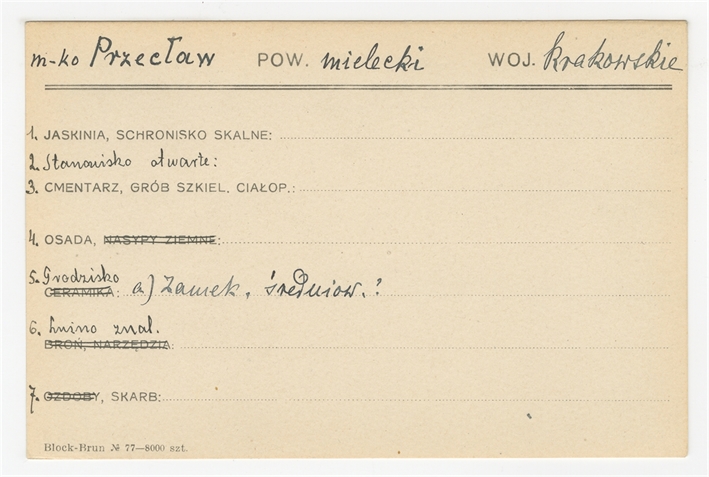 m-ko Przecław POW. mielecki WOJ. Krakowskie
1. JASKINIA, SCHRONISKO SKALNE:
2. Stanowisko otwarte:
3. CMENTARZ, GRÓB SZKIEL. CIAŁOP.:
4. OSADA, NASYPY ZIEMNE:
5. Grodzisko
CERAMIKA: a) Zamek, średniow.?
6. Luźno znal.
BROŃ, NARZĘDZIA:
7. OZDOBY, SKARB:
Block-Brun № 77—8000 szt.